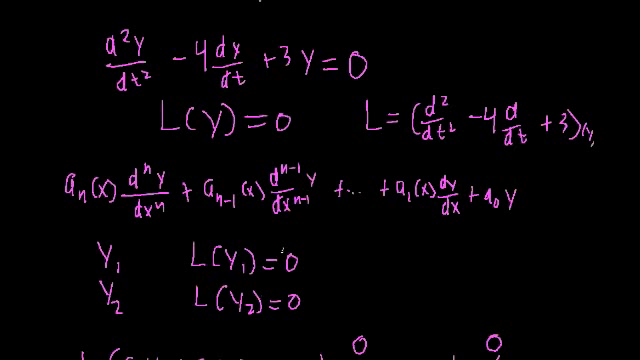 d²y/dt² - 4 dy/dt + 3y = 0
L(y) = 0 L = (d²/dt² - 4 d/dt + 3)(y)
aₙ(x) dⁿy/dxⁿ + aₙ₋₁(x) dⁿ⁻¹y/dxⁿ⁻¹ + ... + a₁(x) dy/dx + a₀ y
y₁ L(y₁) = 0
y₂ L(y₂) = 0
0 0